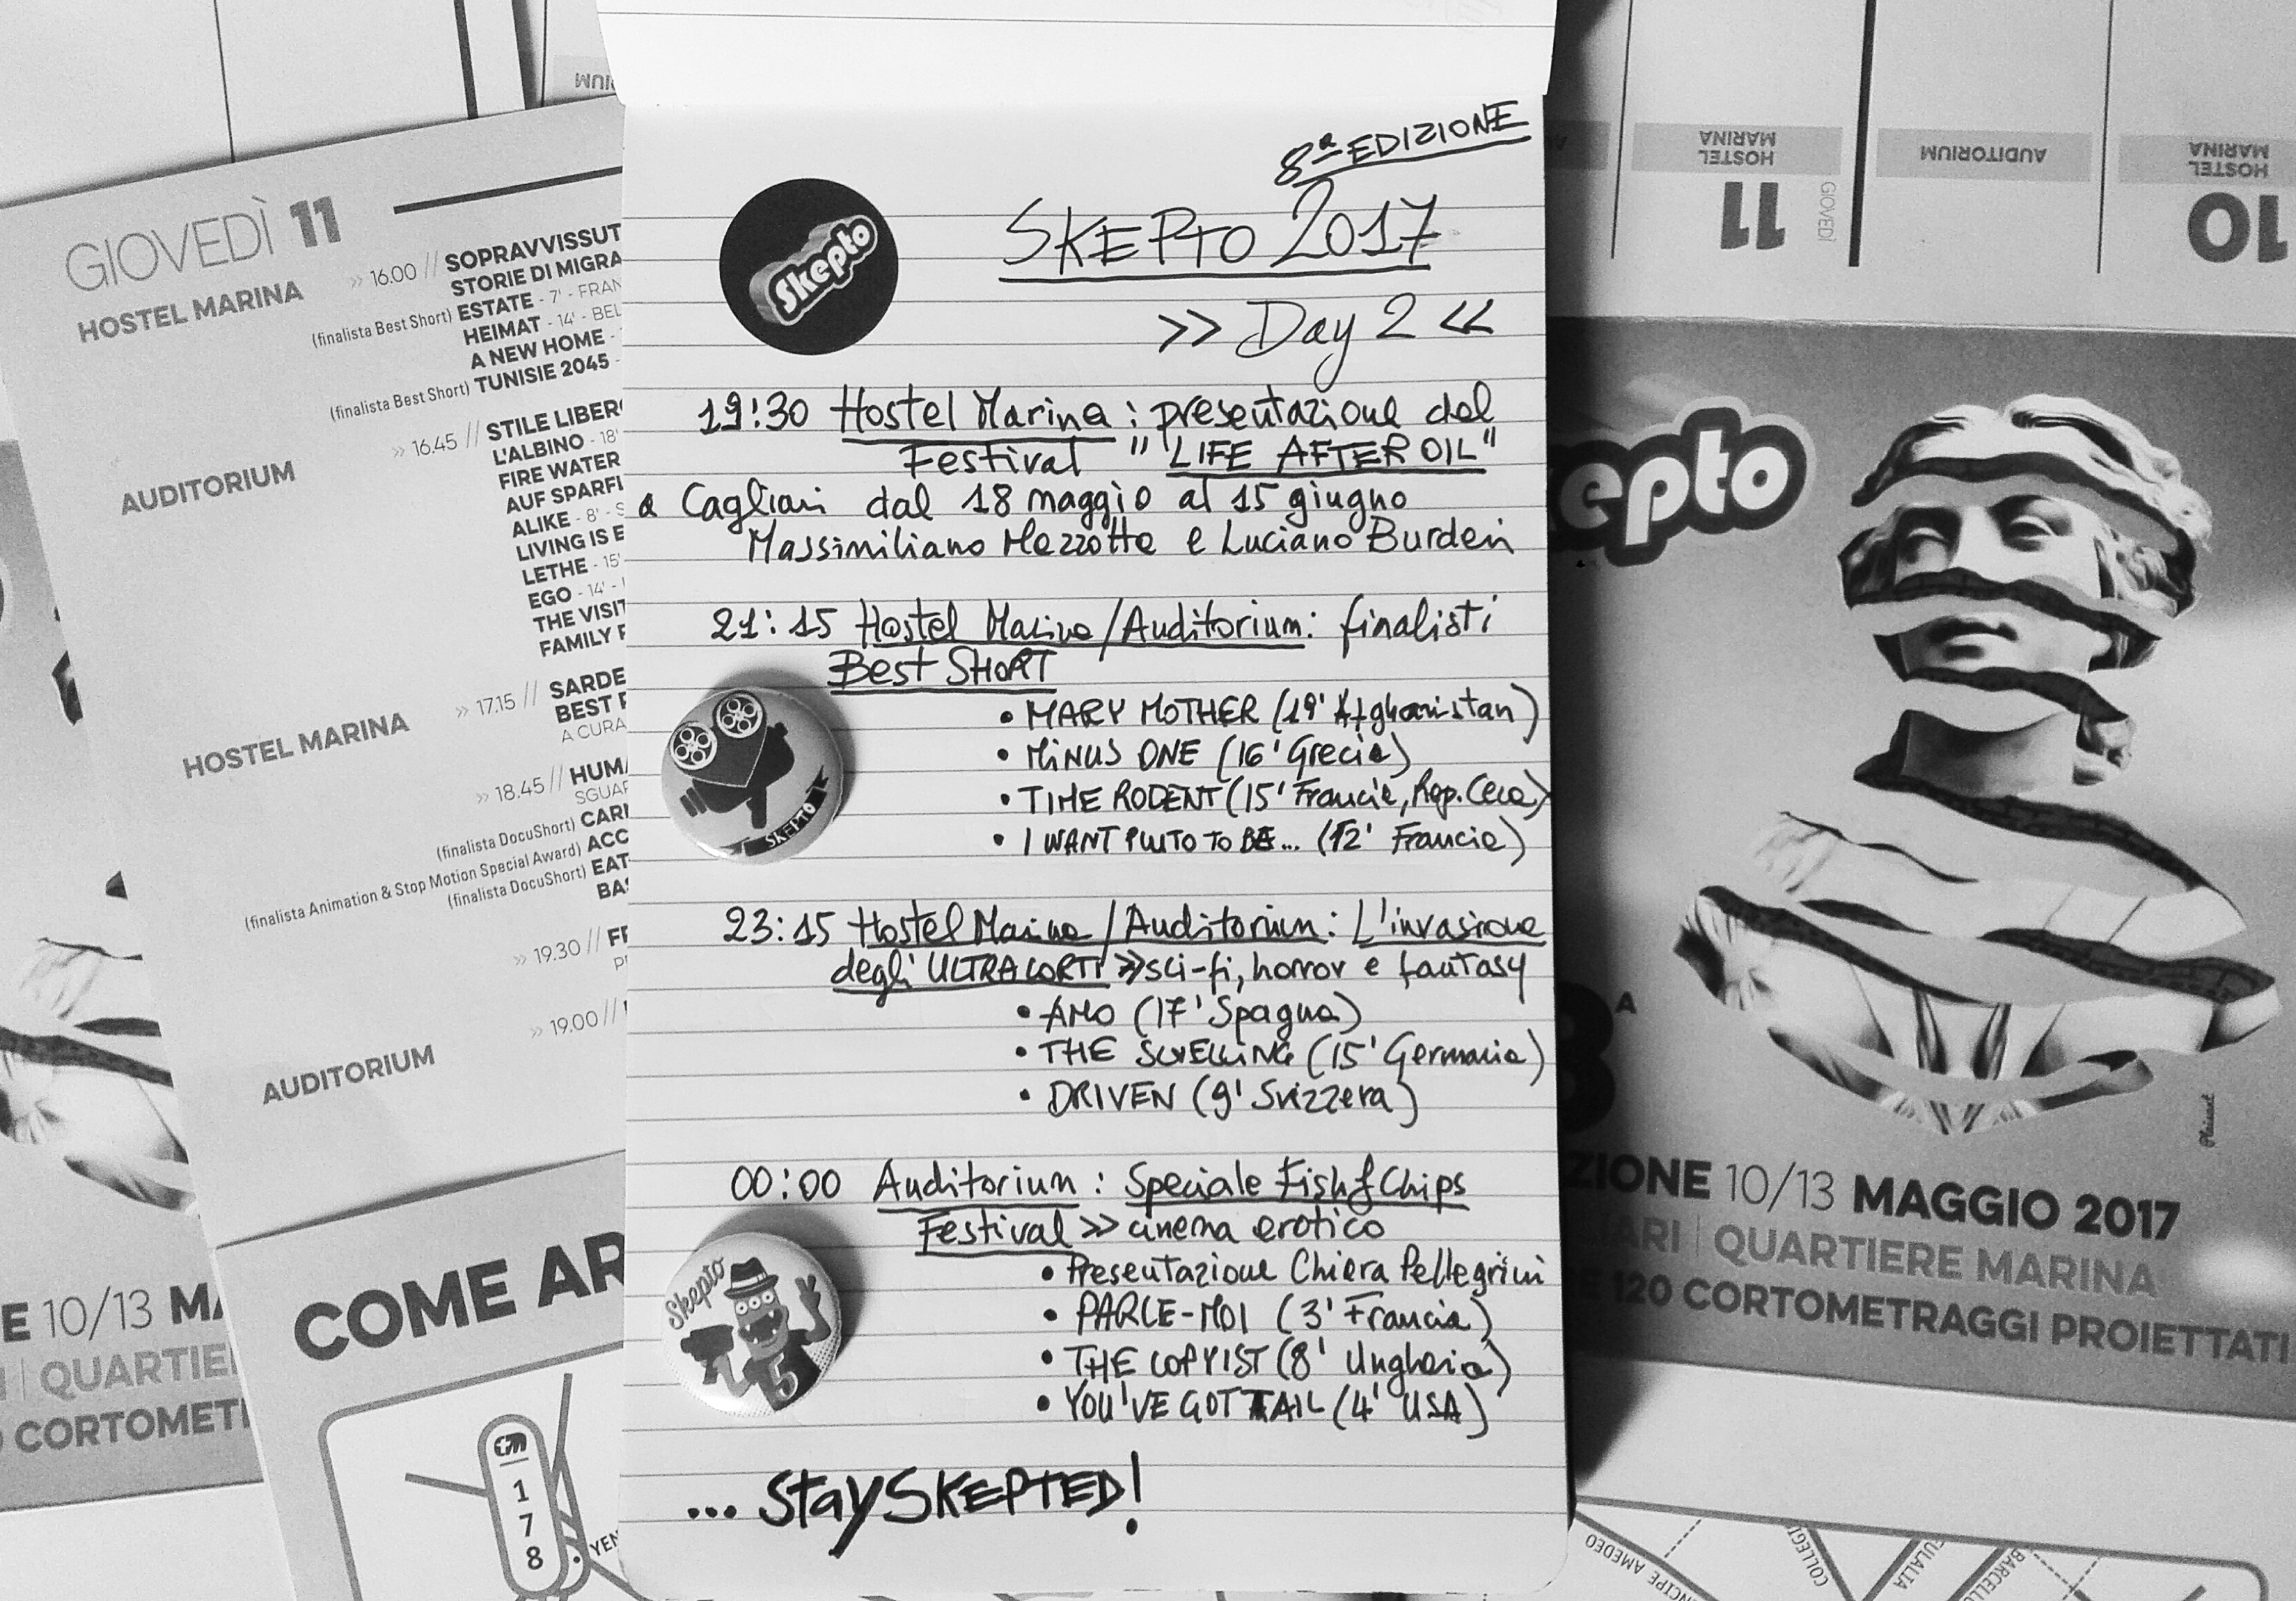 GIOVEDÌ 11
HOSTEL MARINA
>> 16.00 // SOPRAVVISSUT
STORIE DI MIGRA
(finalista Best Short) ESTATE - 7' - FRAN
HEIMAT - 14' - BEL
A NEW HOME -
(finalista Best Short) TUNISIE 2045 -
AUDITORIUM
>> 16.45 // STILE LIBER
L'ALBINO - 18'
FIRE WATER
AUF SPARFL
ALIKE - 8' - S
LIVING IS E
LETHE - 15'
EGO - 14' -
THE VISIT
FAMILY F
HOSTEL MARINA
>> 17.15 // SARDE
BEST F
A CURA
>> 18.45 // HUMA
SGUAR
(finalista DocuShort) CARI
(finalista Animation & Stop Motion Special Award) ACC
(finalista DocuShort) EAT
BAS
>> 19.30 // FR
PR
AUDITORIUM
>> 19.00 //
COME AR
CTM
1
7
8
YEN
E 10/13 MA
QUARTIE
CORTOMET
8ª EDIZIONE
Skepto
SKEPTO 2017
>> Day 2 <<
19:30 Hostel Marina: presentazione del
Festival "LIFE AFTER OIL"
a Cagliari dal 18 maggio al 15 giugno
Massimiliano Mazzotta e Luciano Burderi
21:15 Hostel Marina/Auditorium: finalisti
Best SHORT
• MARY MOTHER (19' Afghanistan)
• MINUS ONE (16' Grecia)
• TIME RODENT (15' Francia, Rep. Ceca)
• I WANT PLUTO TO BE... (12' Francia)
SKEPTO
23:15 Hostel Marina/Auditorium: L'invasione
degli ULTRACORTI >> sci-fi, horror e fantasy
• AMO (17' Spagna)
• THE SWELLING (15' Germania)
• DRIVEN (9' Svizzera)
00:00 Auditorium: Speciale Fish & Chips
Festival >> cinema erotico
• Presentazione Chiara Pellegrini
• PARLE-MOI (3' Francia)
• THE COPYIST (8' Ungheria)
• YOU'VE GOT TAIL (4' USA)
Skepto
5
... Stay SKEPTED!
HOSTEL
MARINA
GIOVEDÌ
11
AUDITORIUM
HOSTEL
MARINA
10
epto
8ª
ZIONE 10/13 MAGGIO 2017
ARI | QUARTIERE MARINA
E 120 CORTOMETRAGGI PROIETTATI
AMEDEO
COLLEGI
ULALIA
BARCELLO